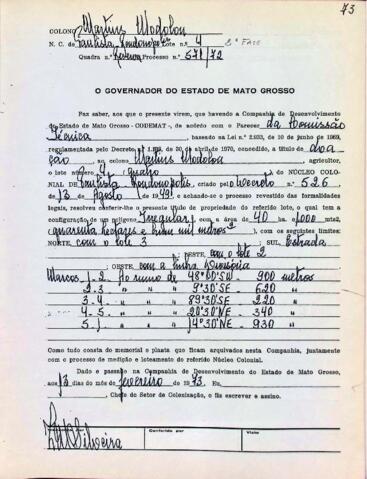 73
COLONO Martins Modolou
N. C. de Paulista Rondonopolis Lote n.º 4 2ª FASE
Quadra n.º Processo n.º 571/72
O GOVERNADOR DO ESTADO DE MATO GROSSO
Faz saber, aos que o presente virem, que havendo a Companhia de Desenvolvimento
do Estado de Mato Grosso - CODEMAT -, de acôrdo com o Parecer da Comissão
Técnica, baseado na Lei n.º 2.933, de 10 de junho de 1969,
regulamentada pelo Decreto de 30 de abril de 1970, concedido, a título de doa
ção ao colono Martins Modolou, agricultor,
o lote número 4 (quatro) do NÚCLEO COLO-
NIAL DE Paulista Rondonopolis, criado pelo Decreto n.º 526
de 13 de Agosto de 1949, e achando-se o processo revestido das formalidades
legais, resolveu conferir-lhe o presente título de propriedade do referido lote, o qual tem a
configuração de um polígono Irregular, com a área de 40 ha. 1.000 mts2,
(quarenta hectares e hum mil metros²), com os seguintes limites:
NORTE, com o lote 3; SUL, Estrada
; LESTE, com o lote 2
; OESTE, com a linha Divisória
Marcos 1-2 Ao rumo de 48º00'SW - 900 metros
2-3 " " " 9º30'SE - 620 "
3-4 " " " 89º30'SE - 220 "
4-5 " " " 20º30'NE - 340 "
5-1 " " " 14º30'NE - 930 "
Como tudo consta do memorial e planta que ficam arquivados nesta Companhia, juntamente
com o processo de medição e loteamento do referido Núcleo Colonial.
Dado e passado na Companhia de Desenvolvimento do Estado de Mato Grosso,
aos 13 dias do mês de fevereiro de 1973. Eu,
, Chefe do Setor de Colonização, o fiz escrever e assino.
Silveira
Conferido por
Visto